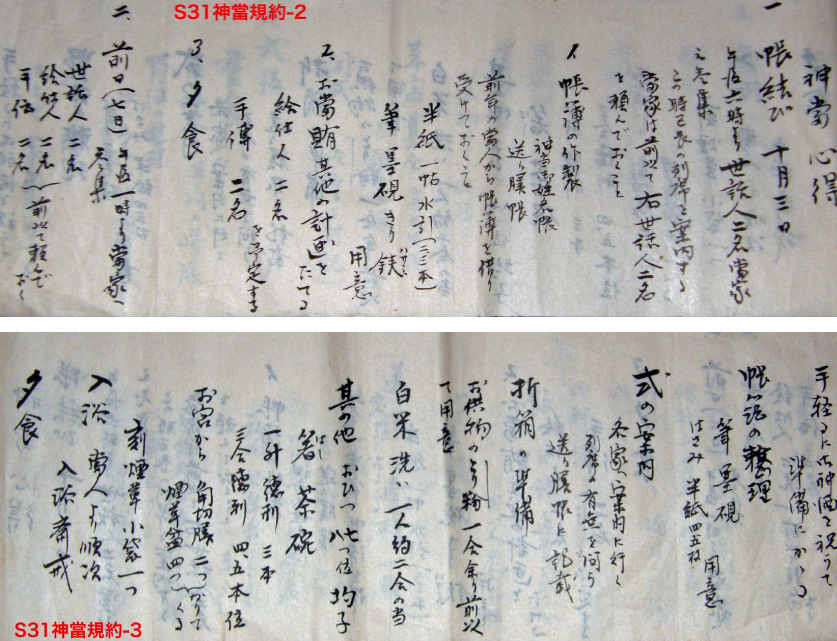 S31神當規約-2
神當心得
一 帳結び 十月三日
午后六時より世話人二名當家
え參集
この時区長の列席を案内する
當家は前以て右世話人二名
を頼んでおくこと
イ 帳簿の作製
神当 姓名帳
送り膳帳
前年の當人から帳簿を借り
受けておくこと
半紙一帖 水引(二三本)
筆墨硯きり 鋏 用意
2、お當賄其他の計画をたてる
給仕人 二名
手傳 二名 を予定する
3、夕食
二、前日(七日) 午后一時より當家へ參集
世話人 二名
給仕人 二名
手伝 二名 前以て頼んでおく
手軽るに御神酒を祝うて
準備にかゝる
帳簿の整理
筆 墨 硯 用意
はさみ 半紙四五枚
式の案内
各家へ案内に行く
列席の有無を伺う
送り膳帳に記載
折箱の準備
お供物のとり粉 一合余り前以
て用意
白米洗い 一人約二合の当
其の他 おひつ 八つ位 杓子
箸 茶碗
一升徳利 三本
三合徳利 四、五本位
お宮から角切膳 二つかりてくる
煙草盆四つ
刻煙草小袋一つ
入浴 當人より順次
入浴斎戒
夕食
S31神當規約-3